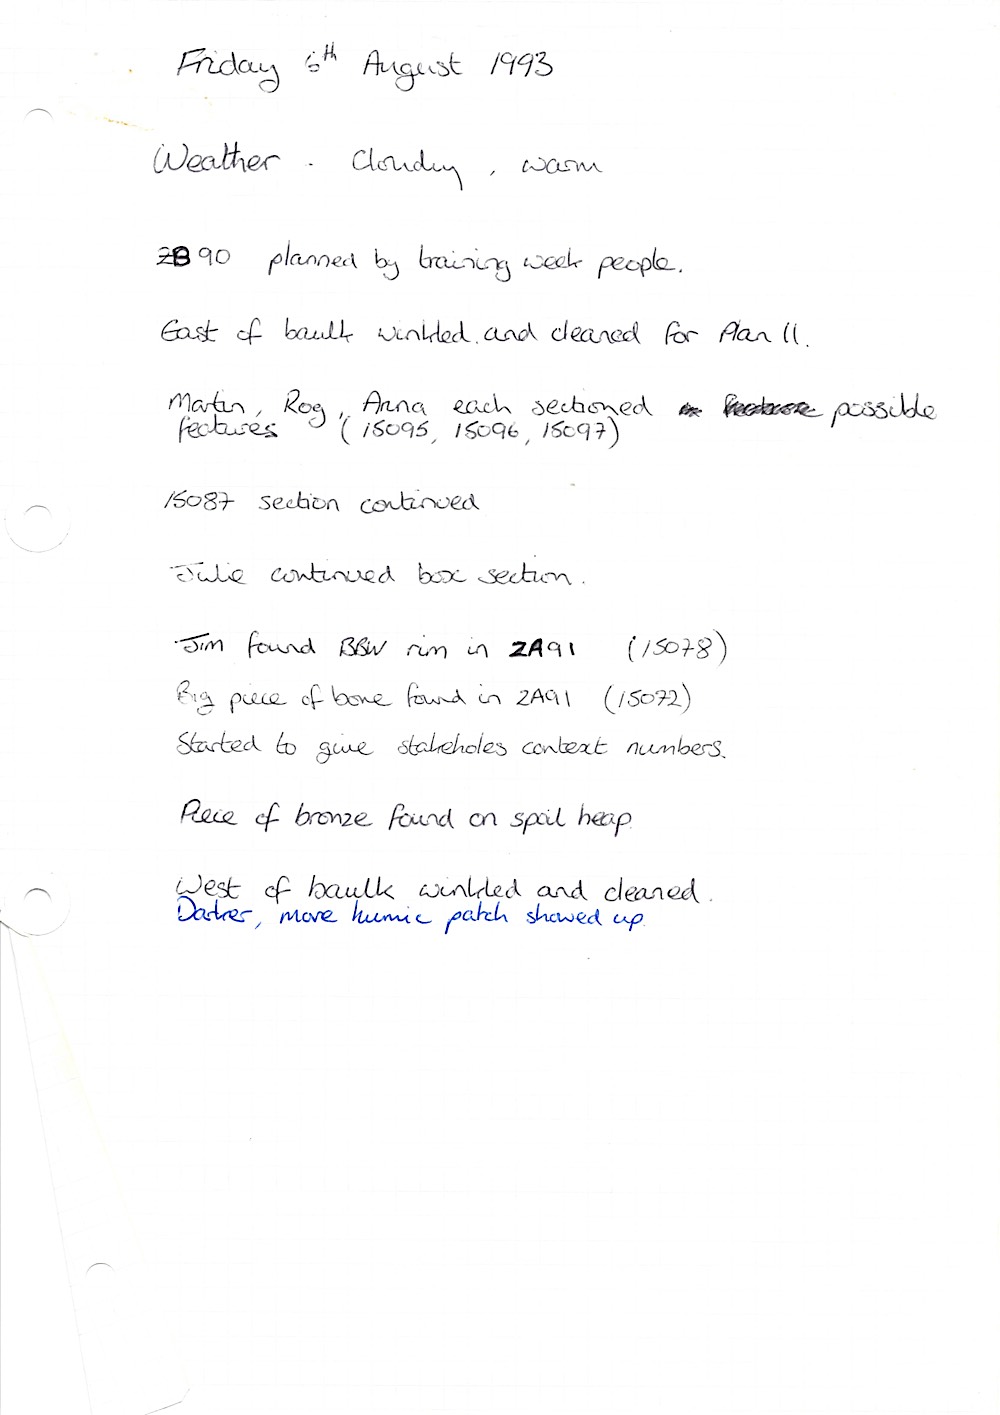 Friday 6th August 1993
Weather - Cloudy, warm
ZB90 planned by training week people.
East of baulk winkled and cleaned for Plan 11.
Martin, Rog, Anna each sectioned possible
features (15095, 15096, 15097)
15087 section continued
Julie continued box section.
Jim found BBW rim in ZA91 (15078)
Big piece of bone found in ZA91 (15072)
Started to give stakeholes context numbers.
Piece of bronze found on spoil heap
West of baulk winkled and cleaned.
Darker, more humic patch showed up.